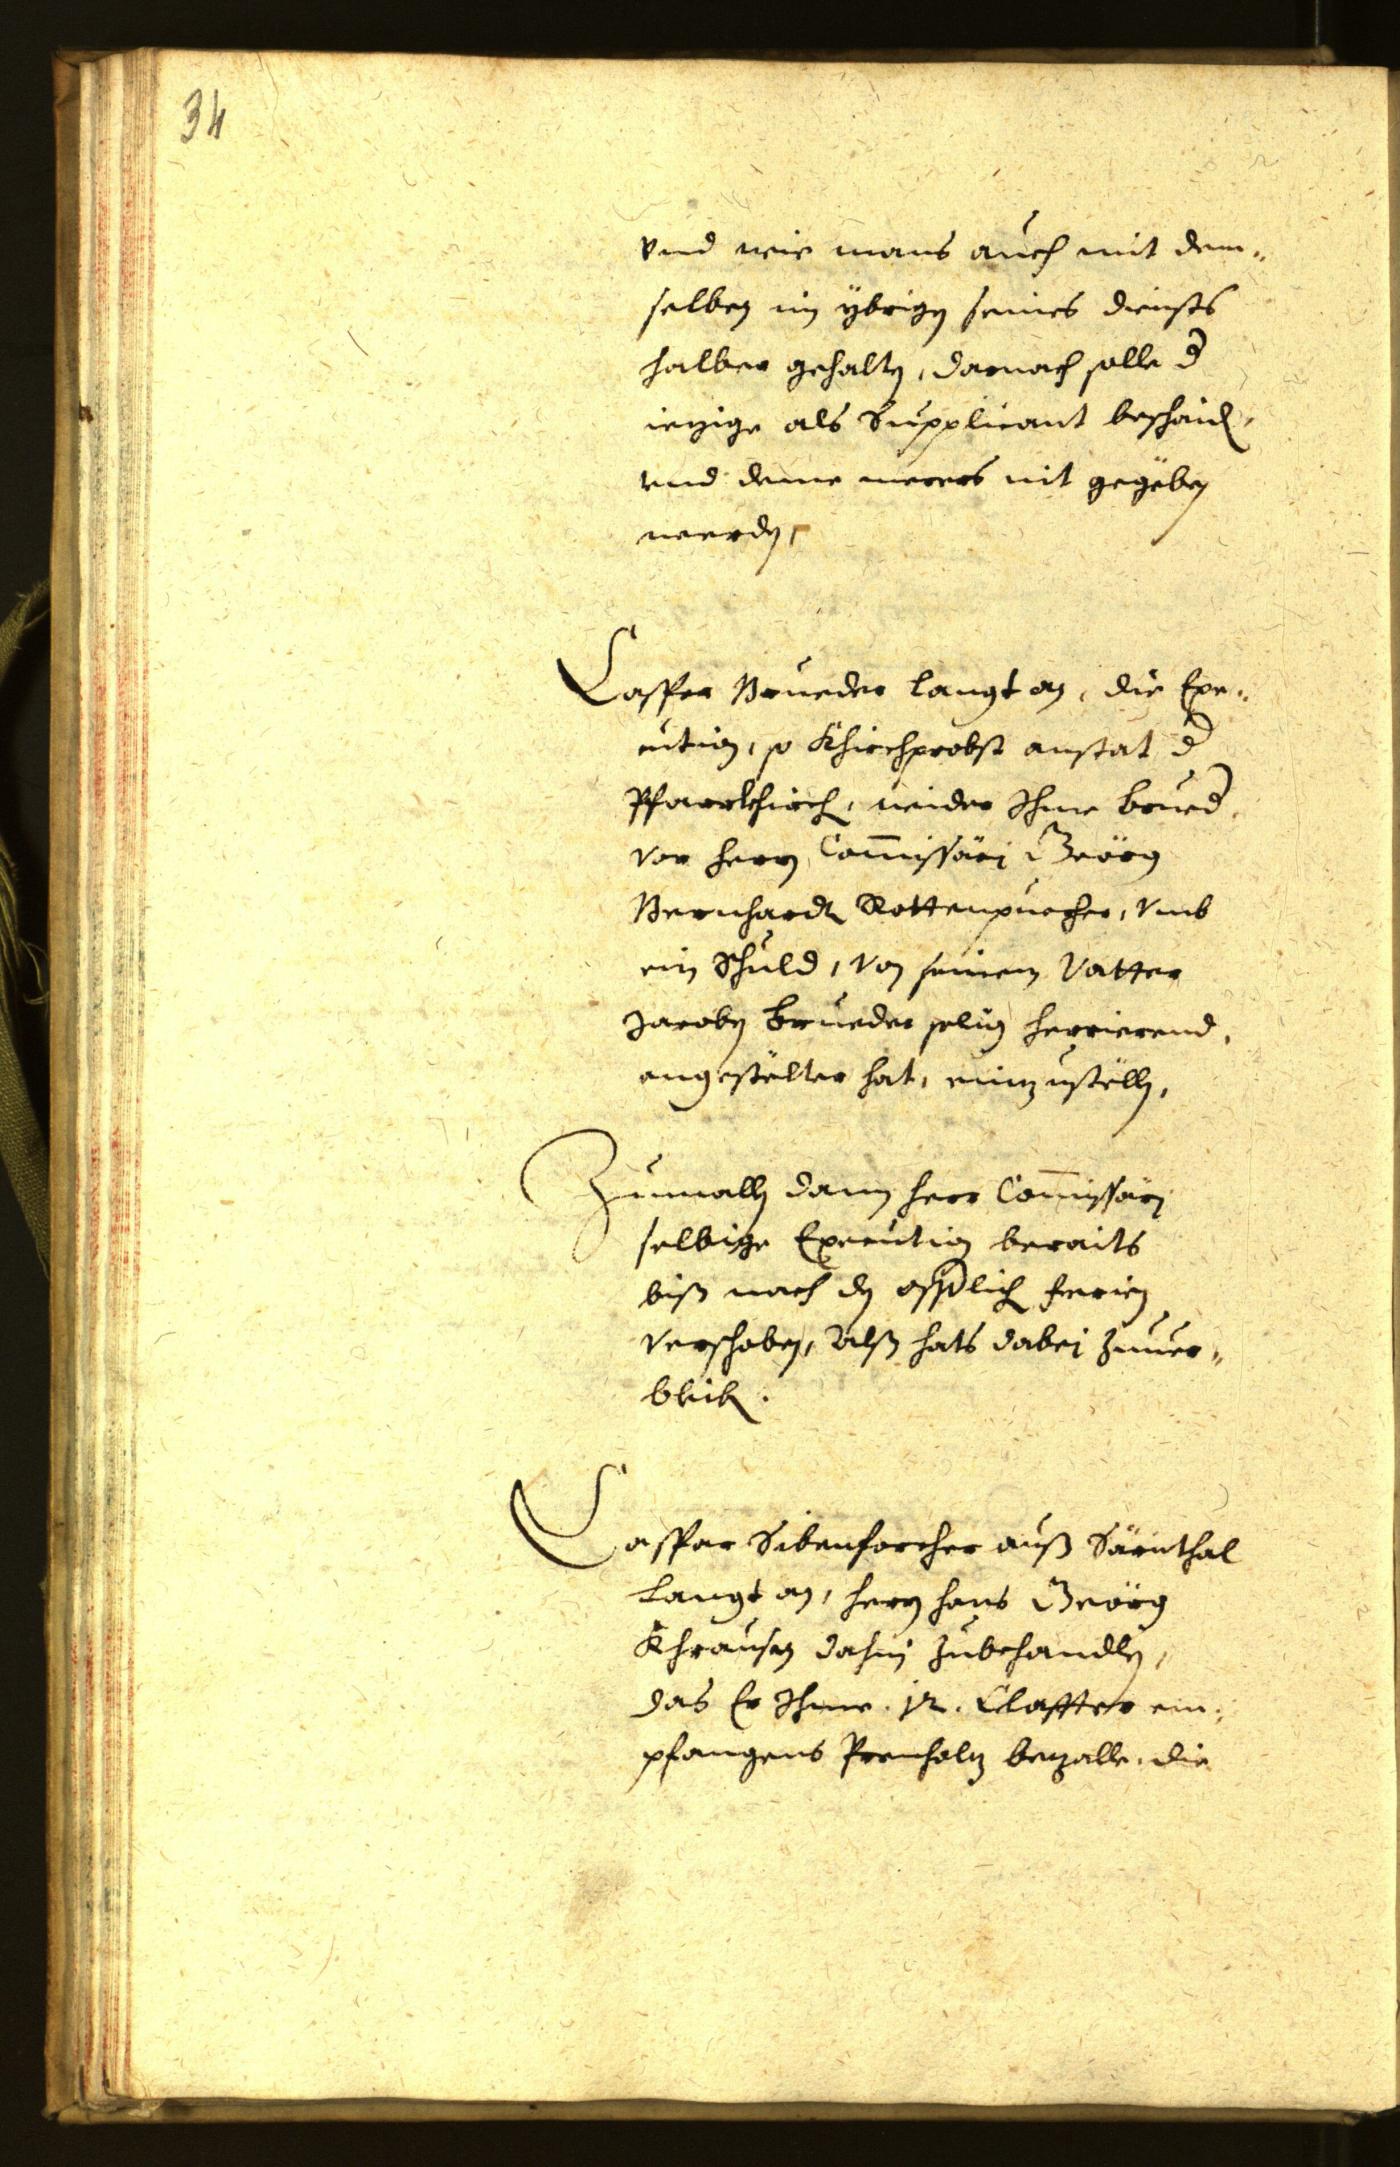 34
vnd wie mans auch mit dem„
selben im ybrigen seines diensts
halber gehalten, darnach solle der
ietzige als Supplicant beschaiden,
vnd deme merers nit gegeben
werden,
Casper Brueder langt an, die Exe„
cution, so Khirchprobst anstat der
Pfarrkhirchen, wider Ihme brueder
vor herrn Com̅issärj Geörg
Bernhardt Rottenpuecher, vmb
ein Schuld, von seinem Vatter
Jacoben brueder selig herrierend,
angestelter hat, einzustellen,
Zumallen dann herr Com̅issärj
selbige Execution beraits
biß nach den osterlichen ferien
verschoben, Alß hats dabej zuuer„
bleiben.
Casper Sibenforcher auß Särnthal
langt an, herrn hans Geörg
Khrausen dahin zubehandlen,
das Er Ihme .12. Claffter em„
pfangens Prenholz bezalle, die